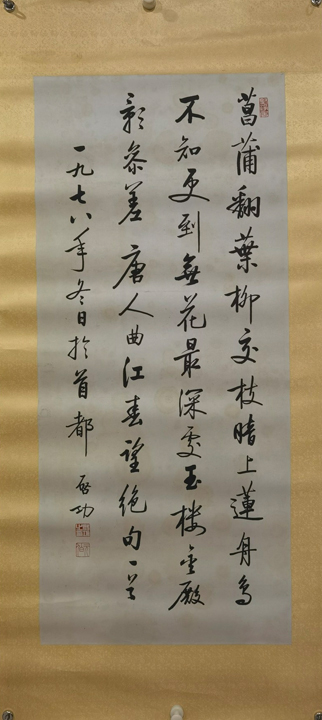 菖蒲翻葉柳交枝暗上蓮舟鳥
不知更到無花最深處玉樓金殿
影參差 唐人曲江春望絶句一首
一九七八年冬日於首都 啓功